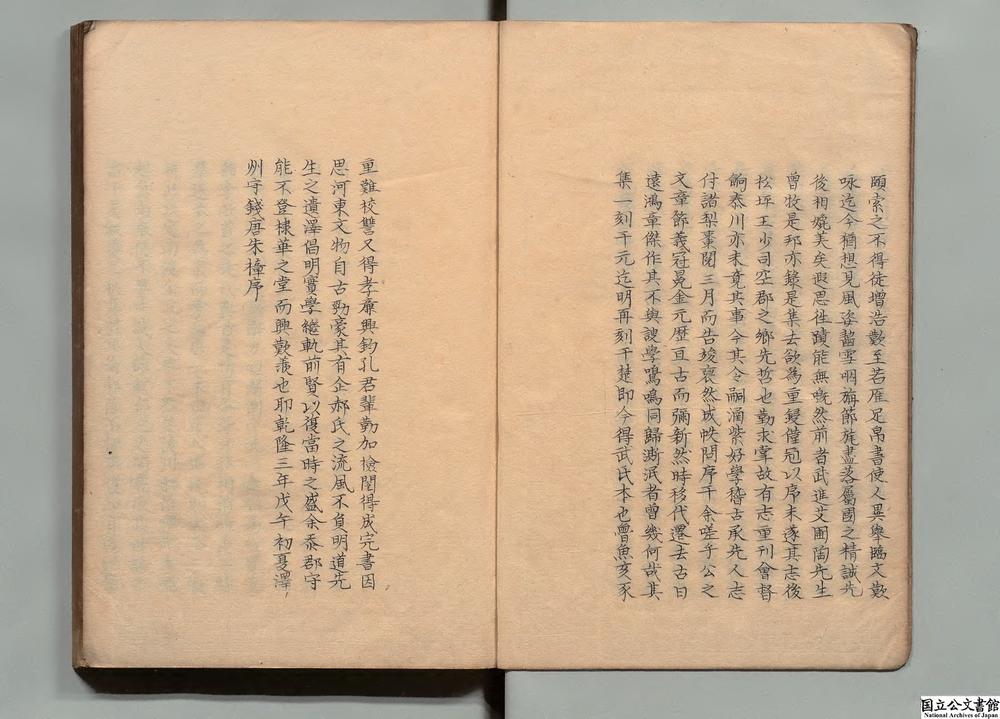 頤索之不得徒增浩歎至若雁足帛書使人異舉臨文歎
咏迄今猶想見風姿齧雪咽旃節旄盡落屬國之精誠先
後相媲美矣遐思徃蹟能無慨然前者武進艾圃陶先生
曾牧是邦亦錄是集去欲為重鋟僅冠以序未遂其志後
松坪王少司空郡之鄉先哲也勤求掌故有志重刊會督
餉泰川亦未竟其事今其令嗣涵紫好學稽古承先人志
付諸梨棗閱三月而告竣裒然成帙問序于余嗟乎公之
文章節義冠冕金元歴亘古而彌新然時移代遷去古日
遠鴻章傑作其不與謏學鳴鳴同歸澌泯者曾幾何哉其
集一刻于元迄明再刻于楚即今得武氏本也曾魚亥豕
重難校讐又得孝廉興鈞孔君輩勤加檢閱得成完書因
思河東文物自古勁豪其有企郝氏之流風不負明道先
生之遺澤倡明實學繼軌前賢以復當時之盛余忝郡守
能不登棣華之堂而興歎羨也耶乾隆三年戊午初夏澤
州守錢唐朱樟序
国立公文書館
National Archives of Japan